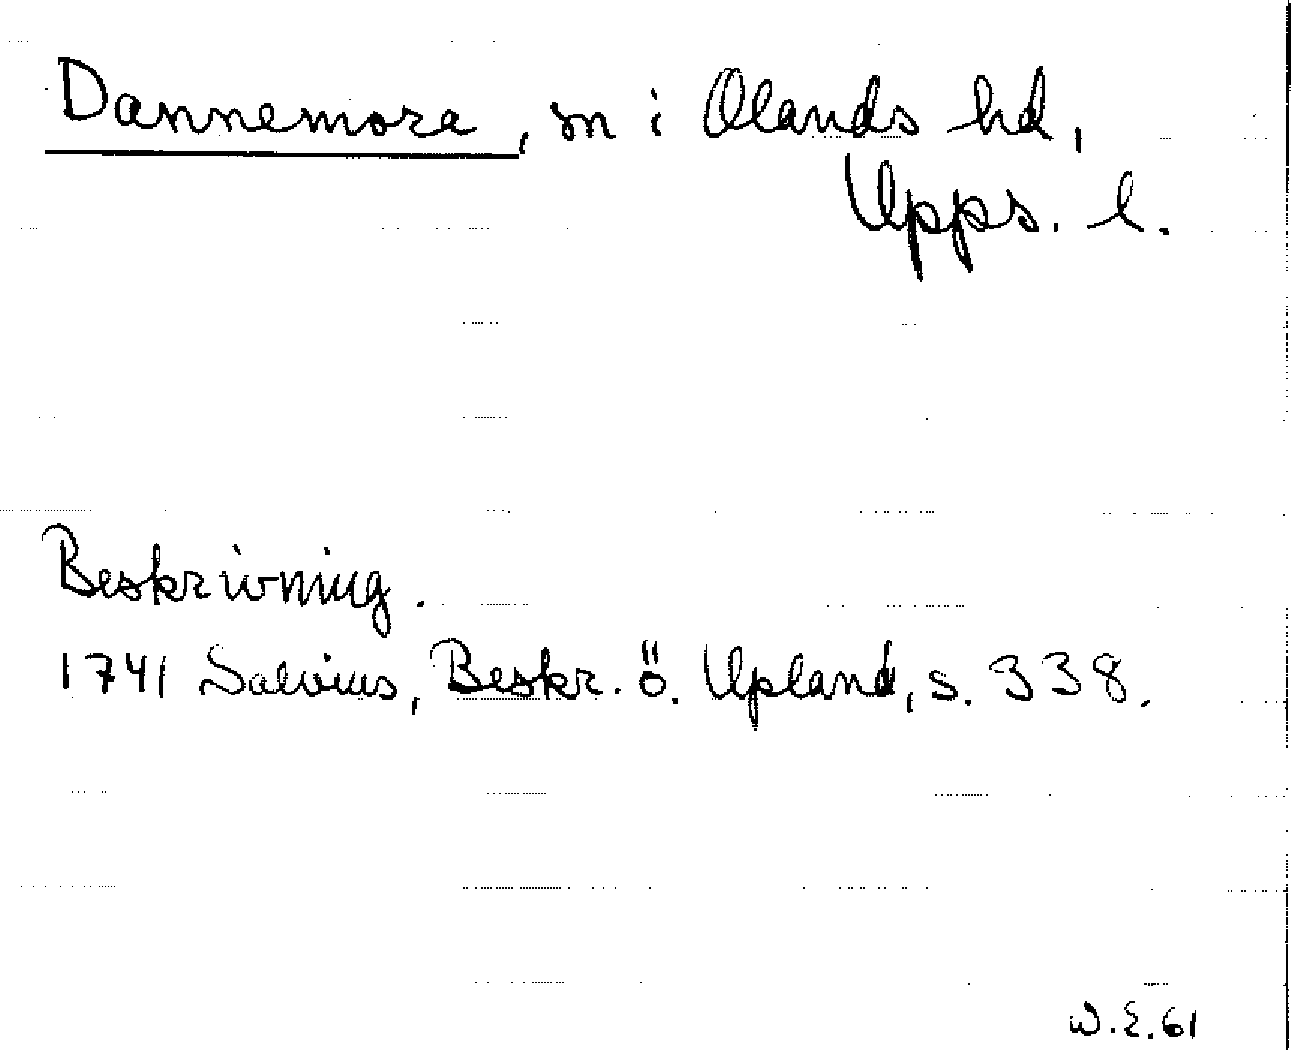 Dannemora, sn i Olands hd,
Upps. l.
Beskrivning.
1741 Salvius, Beskr. ö. Upland, s. 338.
W.E.61